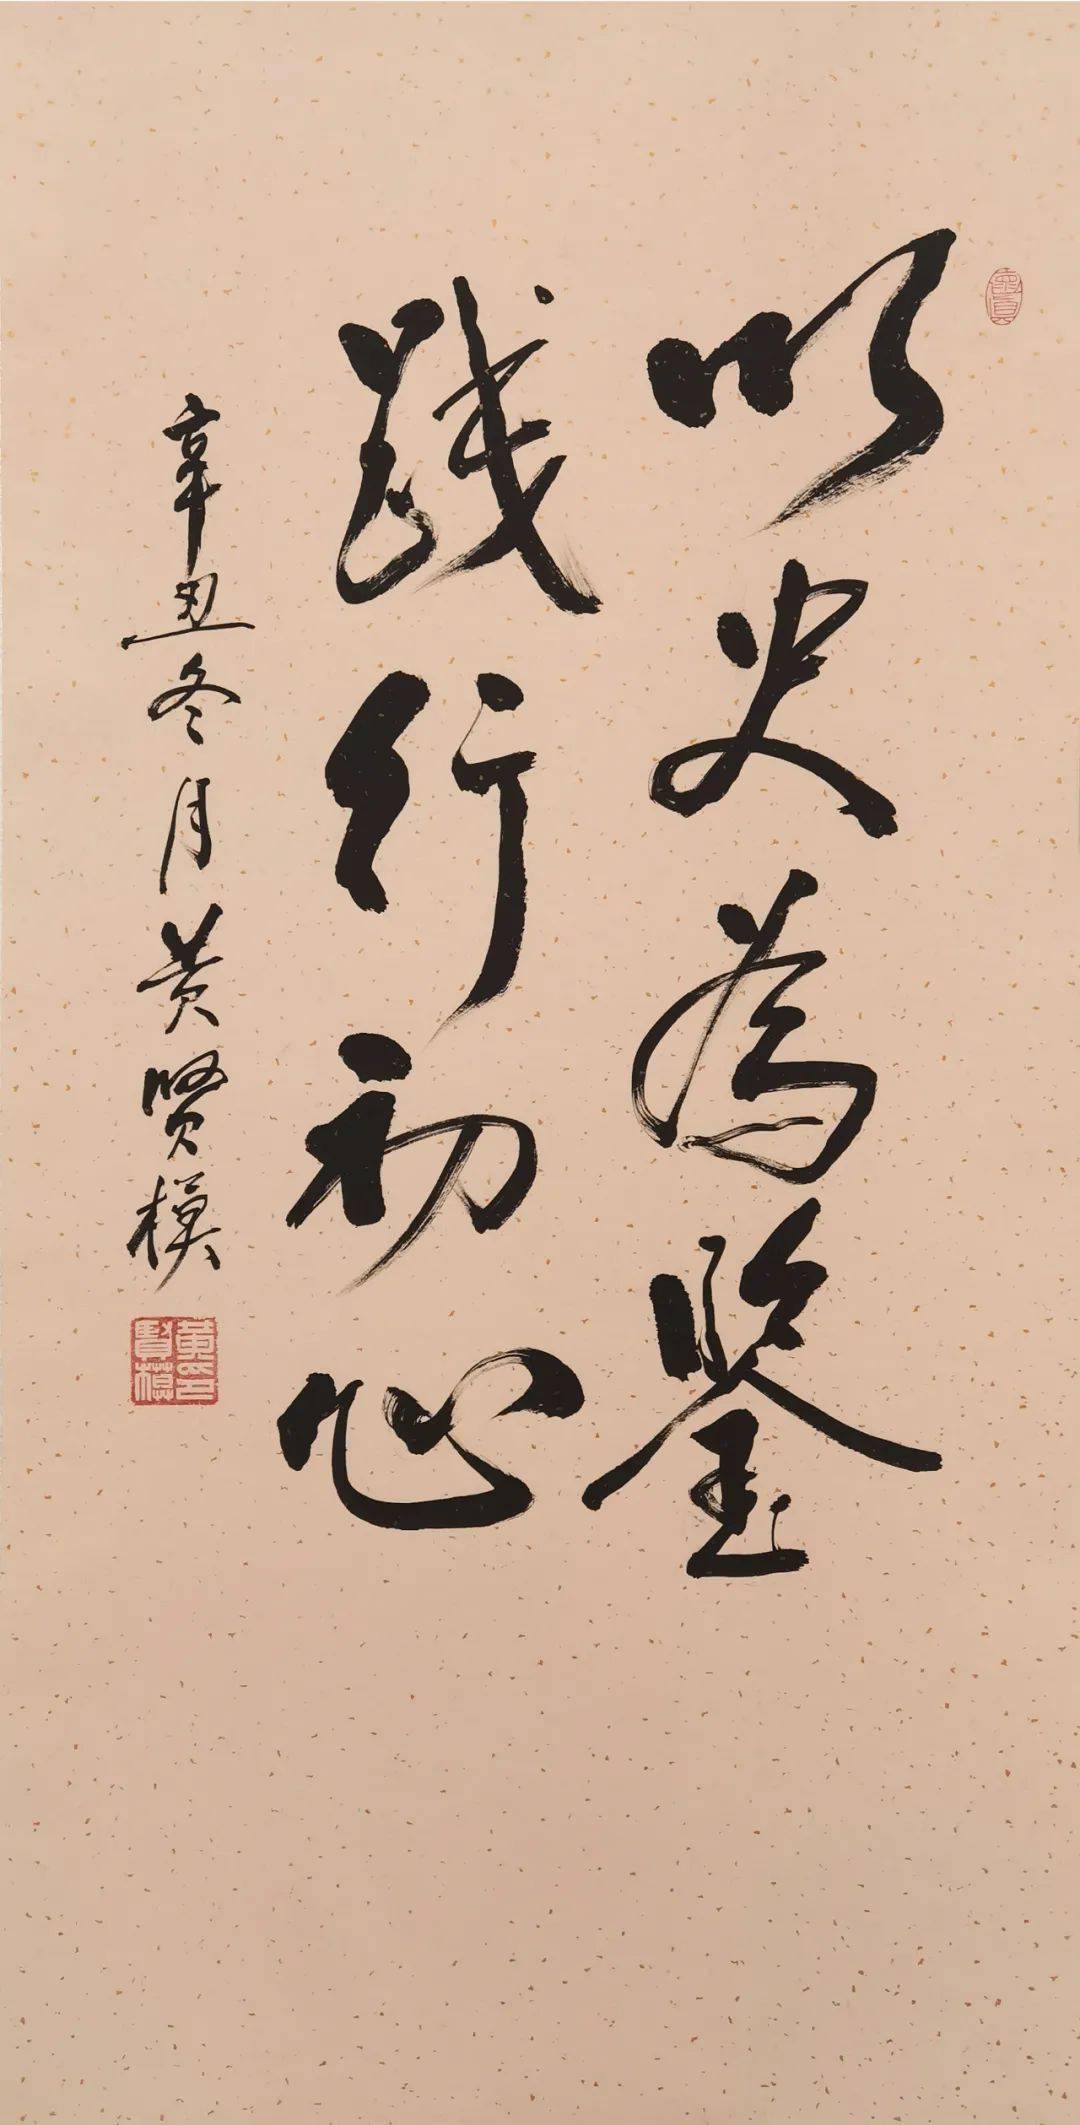 以史為鑒
践行初心
辛丑冬月黄贤模
黄賢模印